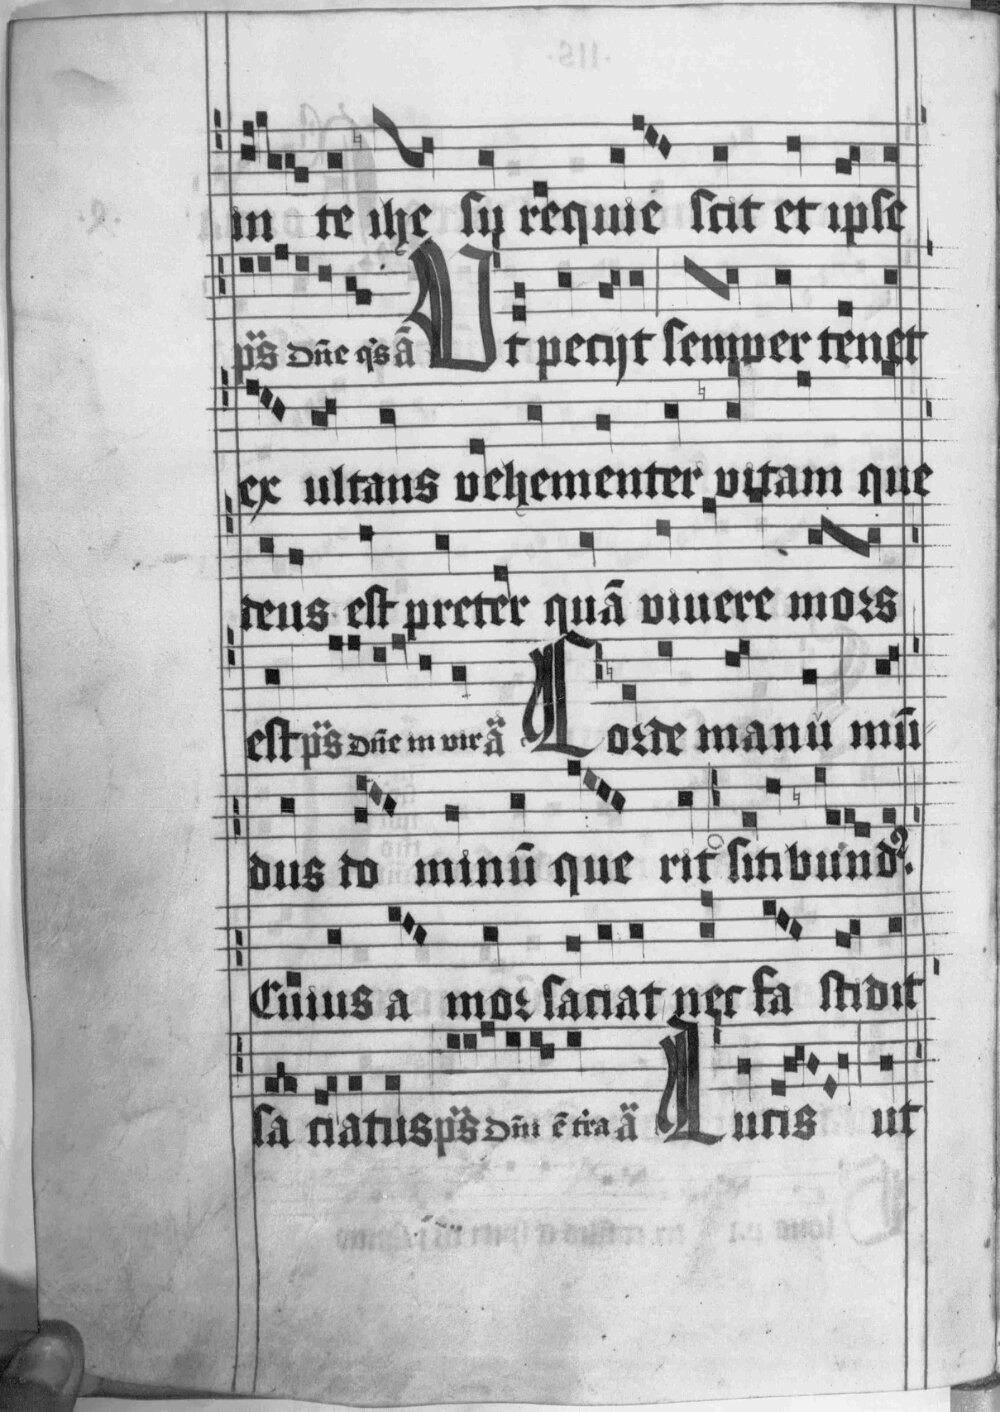 in te ihe su requie scit et ipse
ps dñe qs ā Ut petijt semper tenet
ex ultans vehementer vitam que
deus est preter quā viuere mors
est ps dñe in vir ā Corde manu mū
dus do minū que rit sitibund9.
Cuius a mor saciat nec fa stidit
sa ciatus ps Dñi ē tra ā Lucis ut